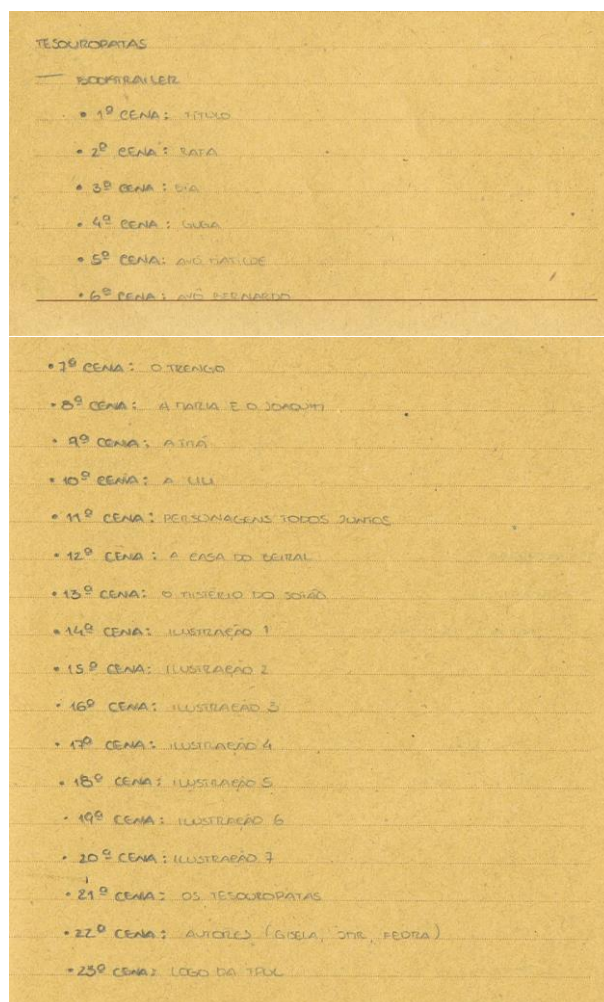 TESOUROPATAS
— BOOKTRAILER
• 1ª CENA: TÍTULO
• 2ª CENA: RATA
• 3ª CENA: DIA
• 4ª CENA: GUGA
• 5ª CENA: AVÓ MATILDE
• 6ª CENA: AVÔ BERNARDO
• 7ª CENA: O TRENGO
• 8ª CENA: A MARIA E O JOAQUIM
• 9ª CENA: A
• 10ª CENA: A LILI
• 11ª CENA: PERSONAGENS TODOS JUNTOS
• 12ª CENA: A CASA DO BEIRAL
• 13ª CENA: O MISTÉRIO DO SOTÃO
• 14ª CENA: ILUSTRAÇÃO 1
• 15ª CENA: ILUSTRAÇÃO 2
• 16ª CENA: ILUSTRAÇÃO 3
• 17ª CENA: ILUSTRAÇÃO 4
• 18ª CENA: ILUSTRAÇÃO 5
• 19ª CENA: ILUSTRAÇÃO 6
• 20ª CENA: ILUSTRAÇÃO 7
• 21ª CENA: OS TESOUROPATAS
• 22ª CENA: AUTORES (GISELA, JMR, FEDRA)
• 23ª CENA: LOGO DA